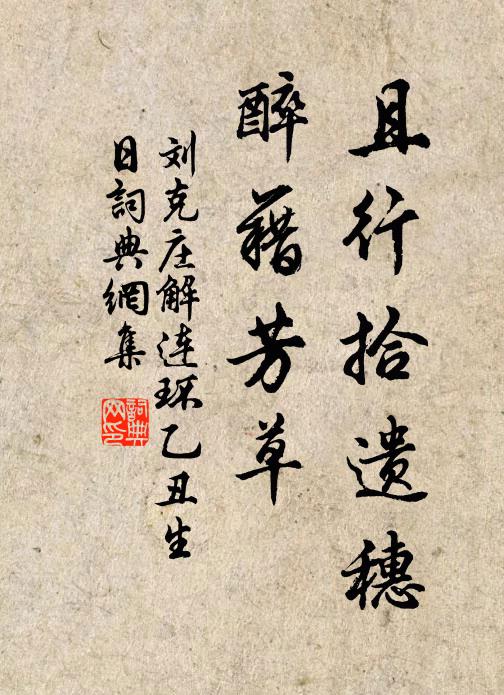 且行拾遗穗
醉藉芳草
刘克庄解连环乙丑生
日詞典網集
詞典网印